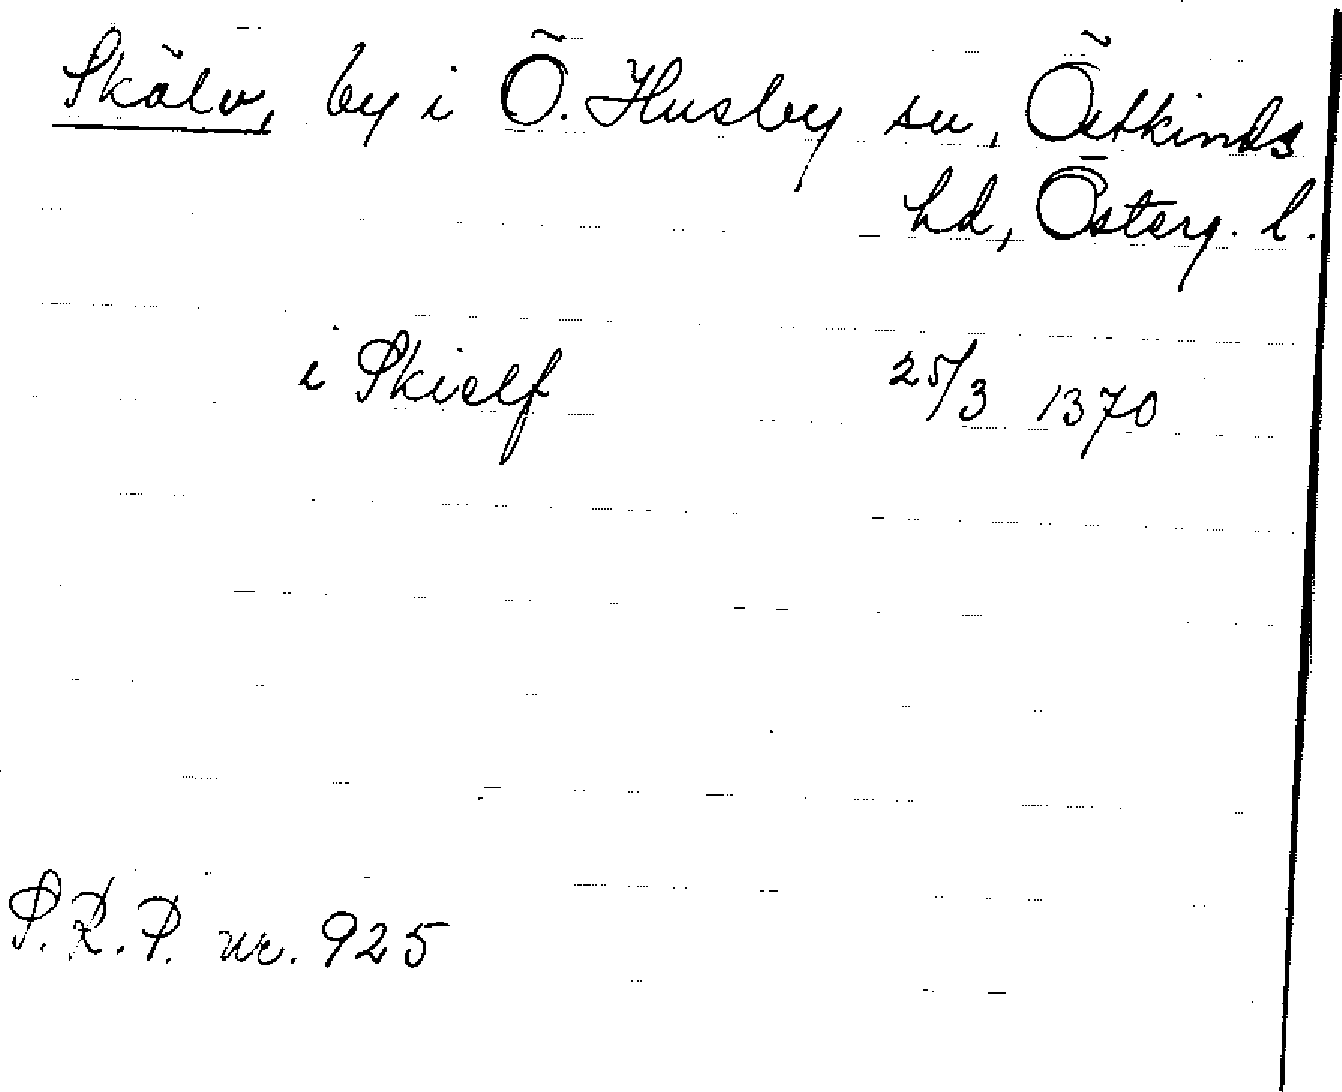 Skälv, by i Ö. Husby sn, Östkinds
hd, Österg. l.
i Skielf 25/3 1370
S.R.P. nr. 925